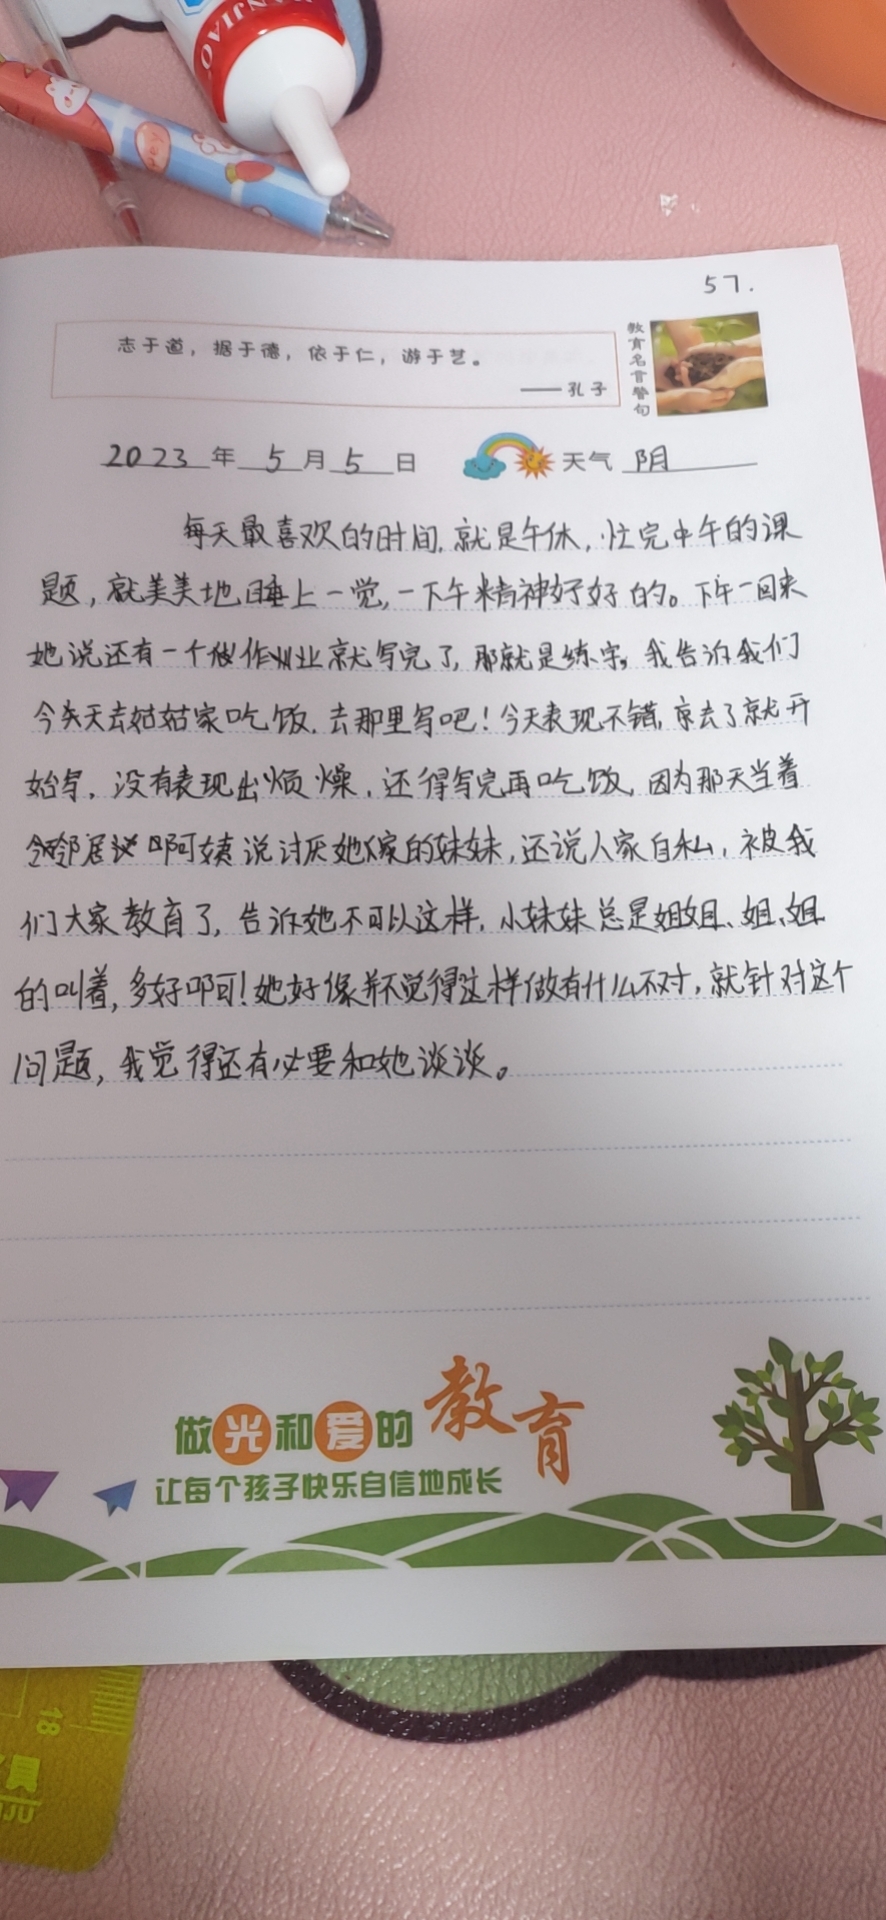 ANJIAO
57.
志于道，据于德，依于仁，游于艺。
——孔子
教育名言警句
2023年5月5日 天气 阴
每天最喜欢的时间，就是午休，忙完中午的课
题，就美美地睡上一觉，一下午精神好好的。下午一回来
她说还有一个作业就写完了，那就是练字，我告诉我们
今天去姑姑家吃饭，去那里写吧！今天表现不错，去了就开
始写，没有表现出烦燥，还得写完再吃饭，因为那天当着
邻居阿姨说讨厌她家的妹妹，还说人家自私，被我
们大家教育了，告诉她不可以这样，小妹妹总是姐姐、姐、姐
的叫着，多好啊！她好像并不觉得这样做有什么不对，就针对这个
问题，我觉得还有必要和她谈谈。
做光和爱的教育
让每个孩子快乐自信地成长
18